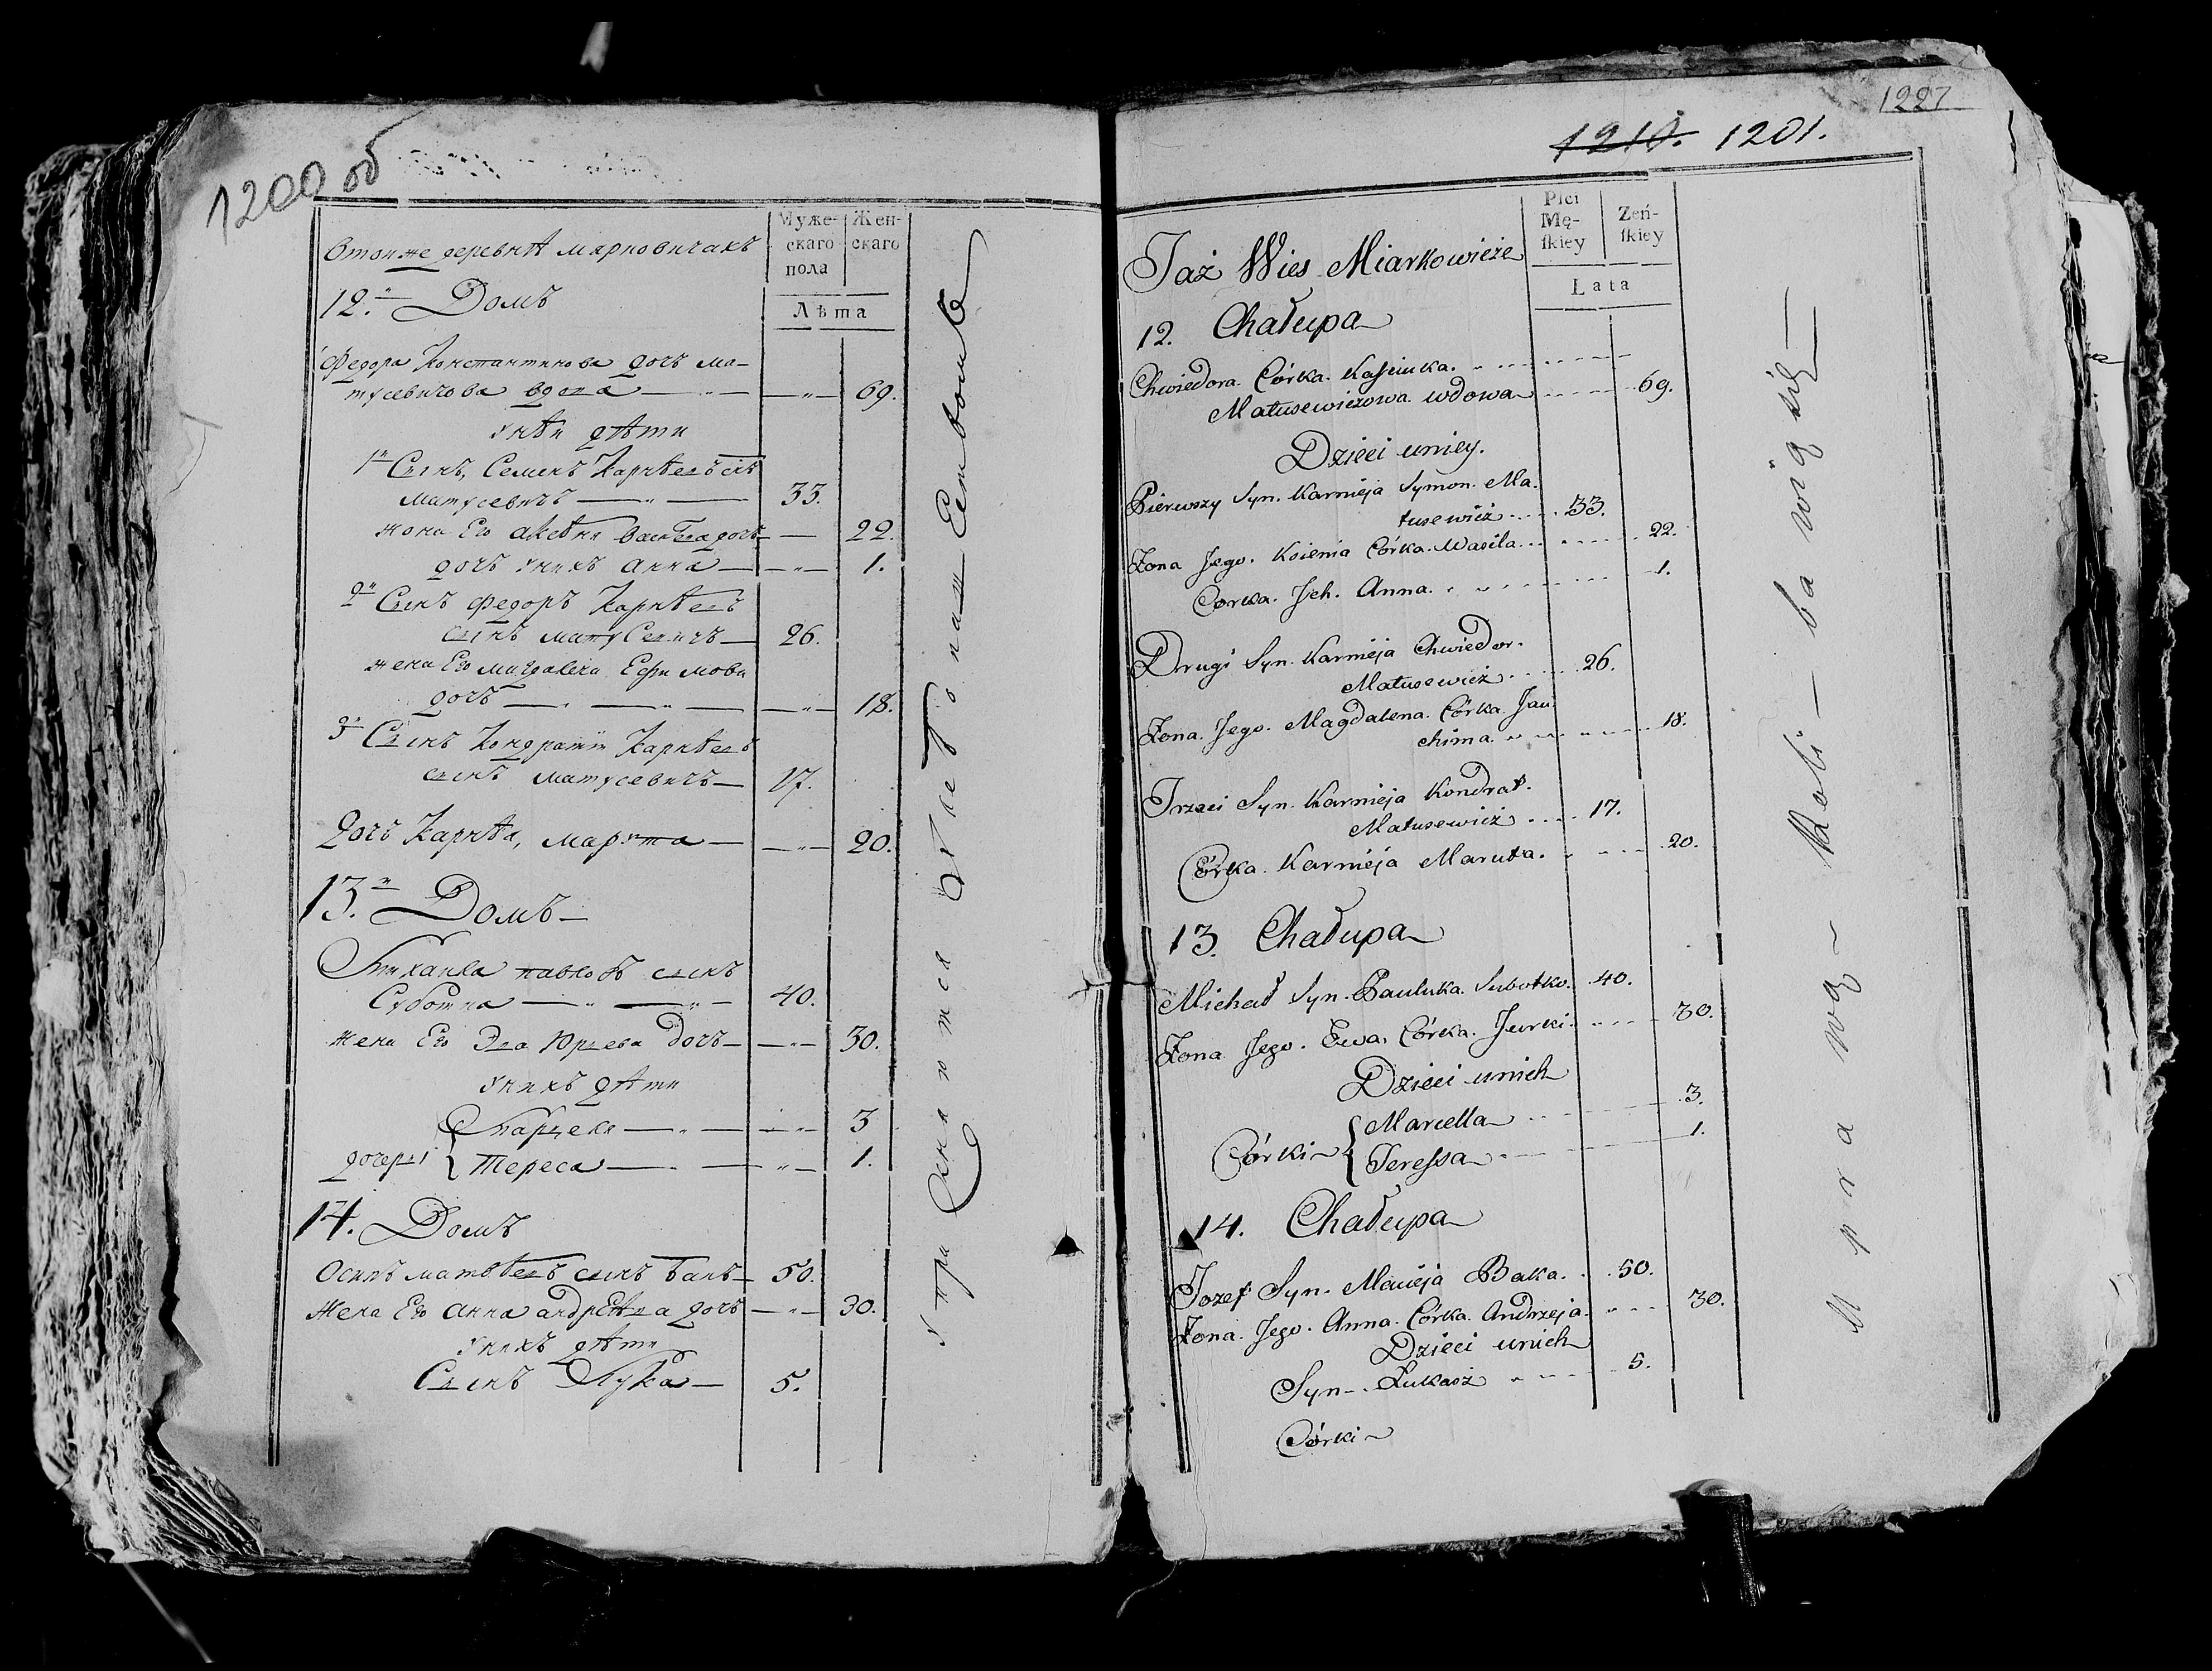 1200 об
Втойже деревнѣ мярковичахъ
Муже- Жен-
скаго скаго
пола
Лѣта
12.й Домъ
Федора Константинова дочъ ма-
тусевичова вдова 69.
унѣи дѣти
1й Сынъ, Семенъ Карнѣевъ снъ
матусевичъ 33.
жена Его Ксѣня васілева дочъ 22.
дочъ унихъ анна 1.
2й Сынъ Федоръ Карнѣевъ
сынъ матусевичъ 26.
жена Его магдалена Ефимова
дочъ 18.
3й Сынъ Кондратій Карнѣевъ
сынъ матусевичъ 17.
Дочъ Карнѣя, марута 20.
13.й Домъ
Михаила павловъ сынъ
Суботка 40.
жена Его Эва Юрьева дочъ 30.
унихъ дѣти
Марцела 3
дочеры Тереса 1.
14. Домъ
Осипъ матвѣевъ сынъ Бакъ 50.
жена Его анна андрѣева дочъ 30.
унихъ дѣти
Сынъ Лука 5.
1227
1210. 1201.
Taż Wies Miarkowicze
Płci
Mę- Zeń-
ſkiey ſkiey
Lata
12. Chałupa
Chwiedora. Córka. Kaſciuka.
Matusewiczowa wdowa 69.
Dzieci uniey.
Pierwszy Syn. Karnieja Symon. Ma-
tusewicz 33.
Zona Jego. Ksienia Córka. Wasila 22.
Corka. Jch. Anna. 1.
Drugi Syn. Karnieja Chwiedor.
Matusewicz 26.
Zona. Jego. Magdalena. Córka. Jau-
chima. 18.
Trzeci Syn. Karnieja Kondrat.
Matusewicz 17.
Córka. Karnieja Maruta. 20.
13. Chałupa
Michał Syn. Pauluka. Subotko. 40.
Zona Jego. Ewa. Córka. Jurki. 30.
Dzieci unich
Marcella 3.
Córki Tereſsa 1.
14. Chałupa
Jozef Syn. Macieja Baka. 50.
Zona. Jego. Anna. Córka. Andrzeja. 30.
Dzieci unich
Syn. Łukasz 5.
Córki